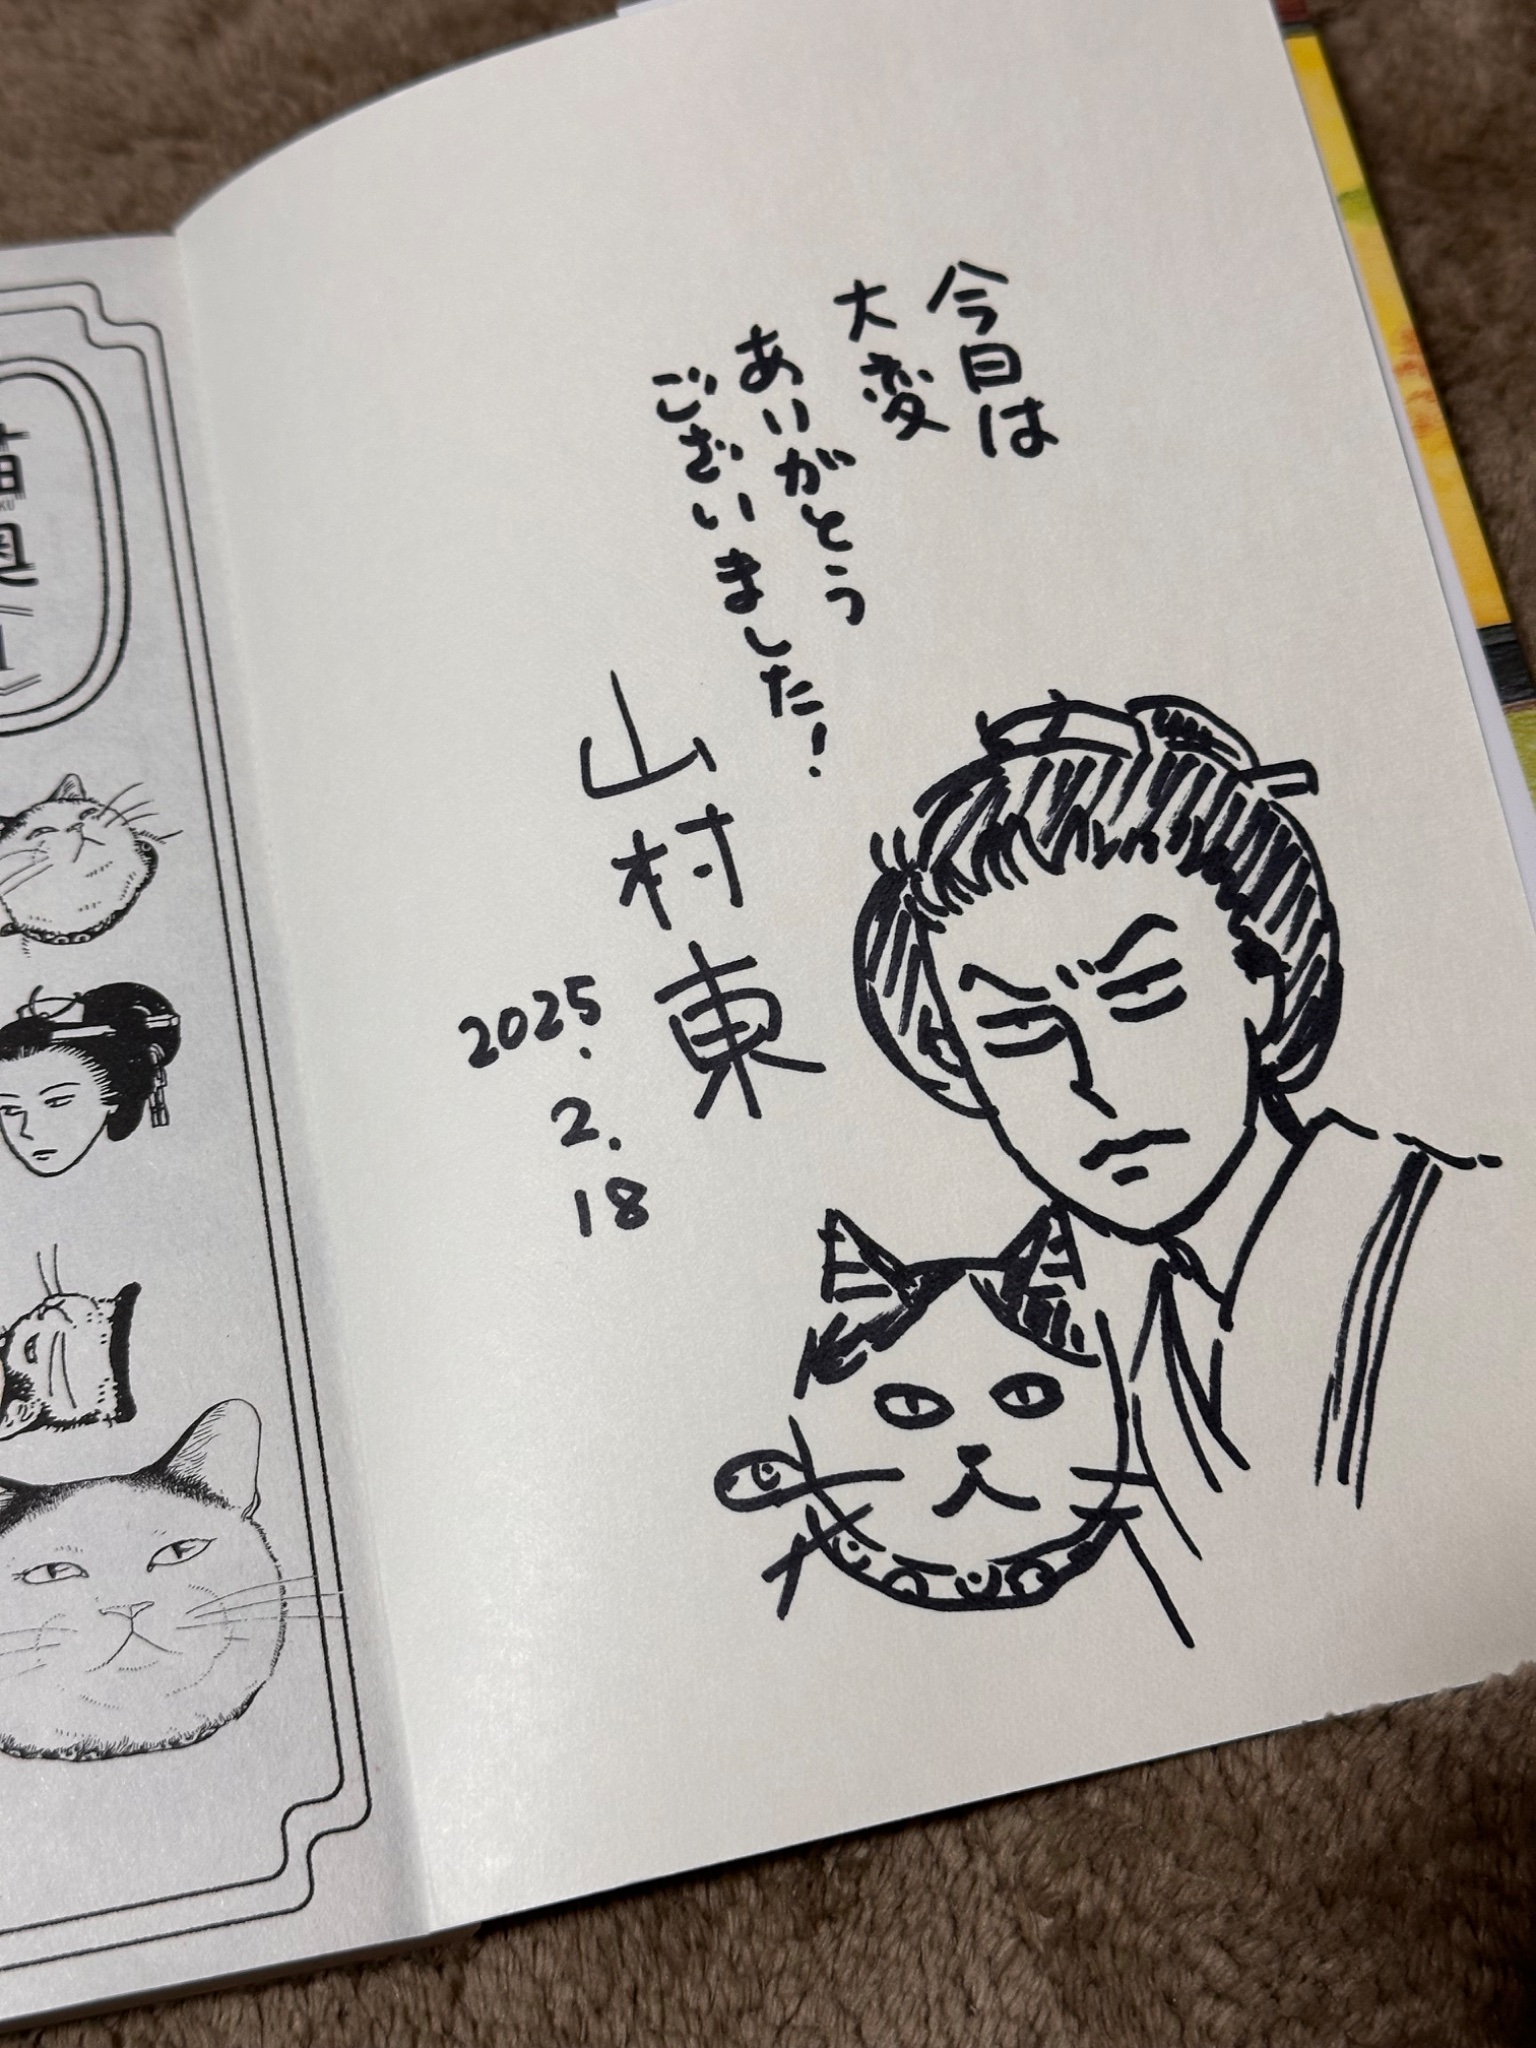 今日は
大変
ありがとう
ございました!
山村東
2025.
2.
18
猫奥